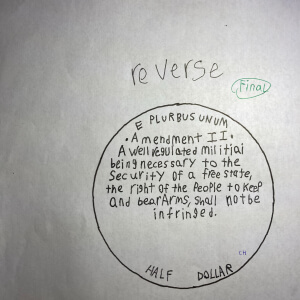 reverse
Final
E PLURBUS UNUM
• Amendment II •
A well regulated militia
being necessary to the
Security of a free state,
the right of the People to keep
and bear Arms, shall not be
infringed.
CH
HALF DOLLAR